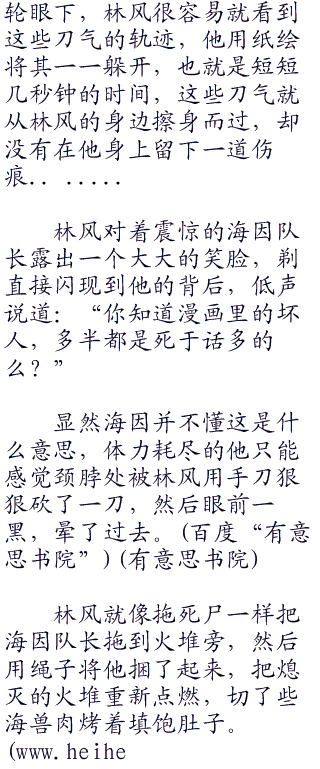 轮眼下，林风很容易就看到
这些刀气的轨迹，他用纸绘
将其一一躲开，也就是短短
几秒钟的时间，这些刀气就
从林风的身边擦身而过，却
没有在他身上留下一道伤
痕．．．．．．．
林风对着震惊的海因队
长露出一个大大的笑脸，剃
直接闪现到他的背后，低声
说道：“你知道漫画里的坏
人，多半都是死于话多的
么？”
显然海因并不懂这是什
么意思，体力耗尽的他只能
感觉颈脖处被林风用手刀狠
狠砍了一刀，然后眼前一
黑，晕了过去。(百度“有意
思书院”)(有意思书院)
林风就像拖死尸一样把
海因队长拖到火堆旁，然后
用绳子将他捆了起来，把熄
灭的火堆重新点燃，切了些
海兽肉烤着填饱肚子。
(www.heihe